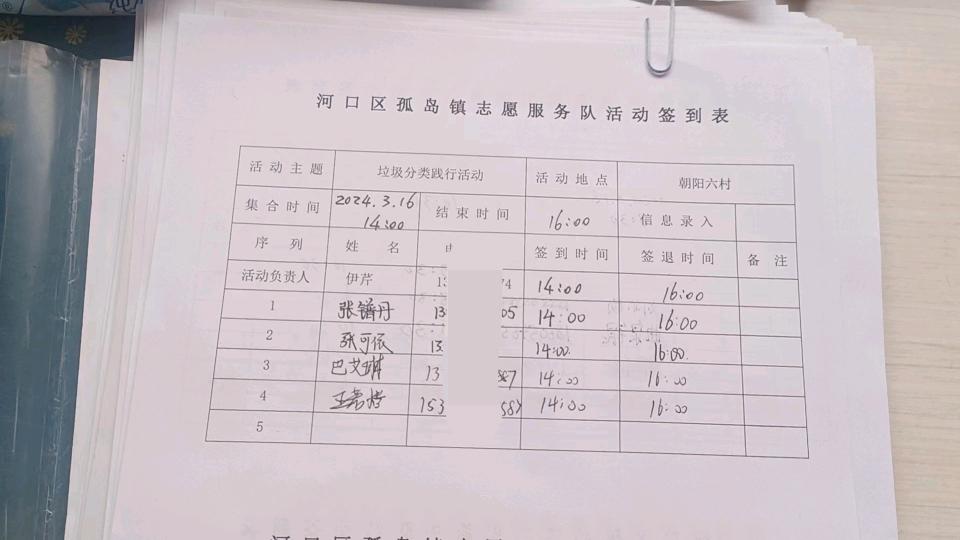 河口区孤岛镇志愿服务队活动签到表
活动主题 垃圾分类践行活动 活动地点 朝阳六村
集合时间 2024.3.16 14:00 结束时间 16:00 信息录入
序列 姓名 签到时间 签退时间 备注
活动负责人 伊芹 13 74 14:00 16:00
1 张 丹 13 05 14:00 16:00
2 张可依 13 14:00 16:00
3 巴艾琳 13 587 14:00 16:00
4 王 153 587 14:00 16:00
5
河口区孤岛镇志愿服